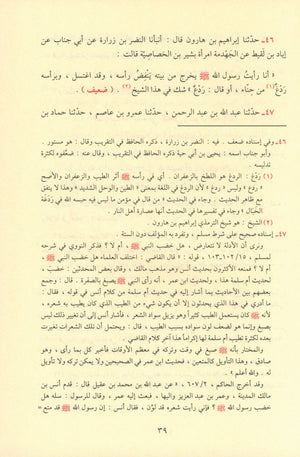 ٤٦ـ حدّثنا إبراهيم بن هارون قال : أنبأنا النضر بن زرارة عن أبي جناب عن
إياد بن لقيط عن الجَهْدمة امرأة بشير بن الخصاصيّة قالت :
« أنا رأيتُ رسول الله ﷺ يخرج من بيته يَنْفُضُ رأسه ، وقد اغتسل ، وبرأسه
رَدْعٌ(١) من حِنّاء ، أو قال : رَدْغٌ » شك في هذا الشيخ(٢) . ( ضعيف ) .
٤٧ـ حدّثنا عبد الله بن عبد الرحمن ، حدّثنا عمرو بن عاصم ، حدّثنا حماد بن
٤٦ـ وفي إسناده ضعف . فيه : النضر بن زرارة ، ذكره الحافظ في التقريب وقال : هو مستور .
وأبو جناب اسمه : يحيى بن أبي حية ذكره الحافظ في التقريب ، وقال عنه : ضعّفوه لكثرة
تدليسه .
(١) رَدْعٌ : الردع هو اللطخ بالزعفران . أي في رأسه ﷺ أثر الطيب والزعفران والأصح
« ردع » وليس « ردغ » لأن الردغ في اللغة بمعنى « الطين والوحل الشديد » وهذا لا يتفق
مع ظاهر الحديث . وجاء في الحديث « من قال في مؤمن ما ليس فيه حبسه الله في رَدَغة
الخَبَال » وجاء في تفسيرها في الحديث أنها عصارة أهل النار .
(٢) الشيخ : هو شيخ الترمذي إبراهيم بن هارون .
٤٧ـ إسناده صحيح على شرط مسلم ، وتفرد به المؤلف دون الستة .
ونرى أن الأدلة لا تتعارض ، هل خضب النبي ﷺ ، أم لا ؟ فذكر النووي في شرحه
لمسلم ، ١٥/١٠٢ـ١٠٣ ، قوله : « قال القاضي : اختلف العلماء هل خضب النبي ﷺ ،
أم لا ؟ فمنعه الأكثرون بحديث أنس وهو مذهب مالك ، وقال بعض المحدثين : خضب ،
لحديث أم سلمة هذا ، ولحديث ابن عمر ، أنه رأى النبي ﷺ يصبغ بالصفرة . قال : وجمع
بعضهم بين الأحاديث بما أشار إليه في حديث أم سلمة من كلام أنس في قوله ، فقال :
ما أدري في هذا الذي يحدثون إلا أن يكون شيء من الطيب الذي كان يطيب به شعره ،
لأنه ﷺ كان يستعمل الطيب كثيراً وهو يزيل سواد الشعر ، فأشار أنس إلى أن تغيير ذلك ليس
بصبغ وإنما هو لضعف لون سواده بسبب الطيب ، قال : ويحتمل أن تلك الشعرات تغيرت
بعده لكثرة تطيب أم سلمة لها إكراماً هذا آخر كلام القاضي .
والمختار بأنه ﷺ صبغ في وقت وتركه في معظم الأوقات فأخبر كل بما رأى ، وهو
صادق ، وهذا التأويل كالمتعين ، فحديث ابن عمر في الصحيحين ولا يمكن تركه ولا تأويل
له . والله أعلم » .
وقد أخرج الحاكم ، ٦٠٧/٢ ، « عن عبد الله بن محمد بن عقيل قال : قدم أنس بن
مالك المدينة ، وعمر بن عبد العزيز واليها ، فبعث إليه عمر ، وقال للرسول : سله هل
خضب رسول الله ﷺ ؟ فإني رأيت شعره قد لوّن ، فقال أنس : إن رسول الله ﷺ قد متع =
٣٩